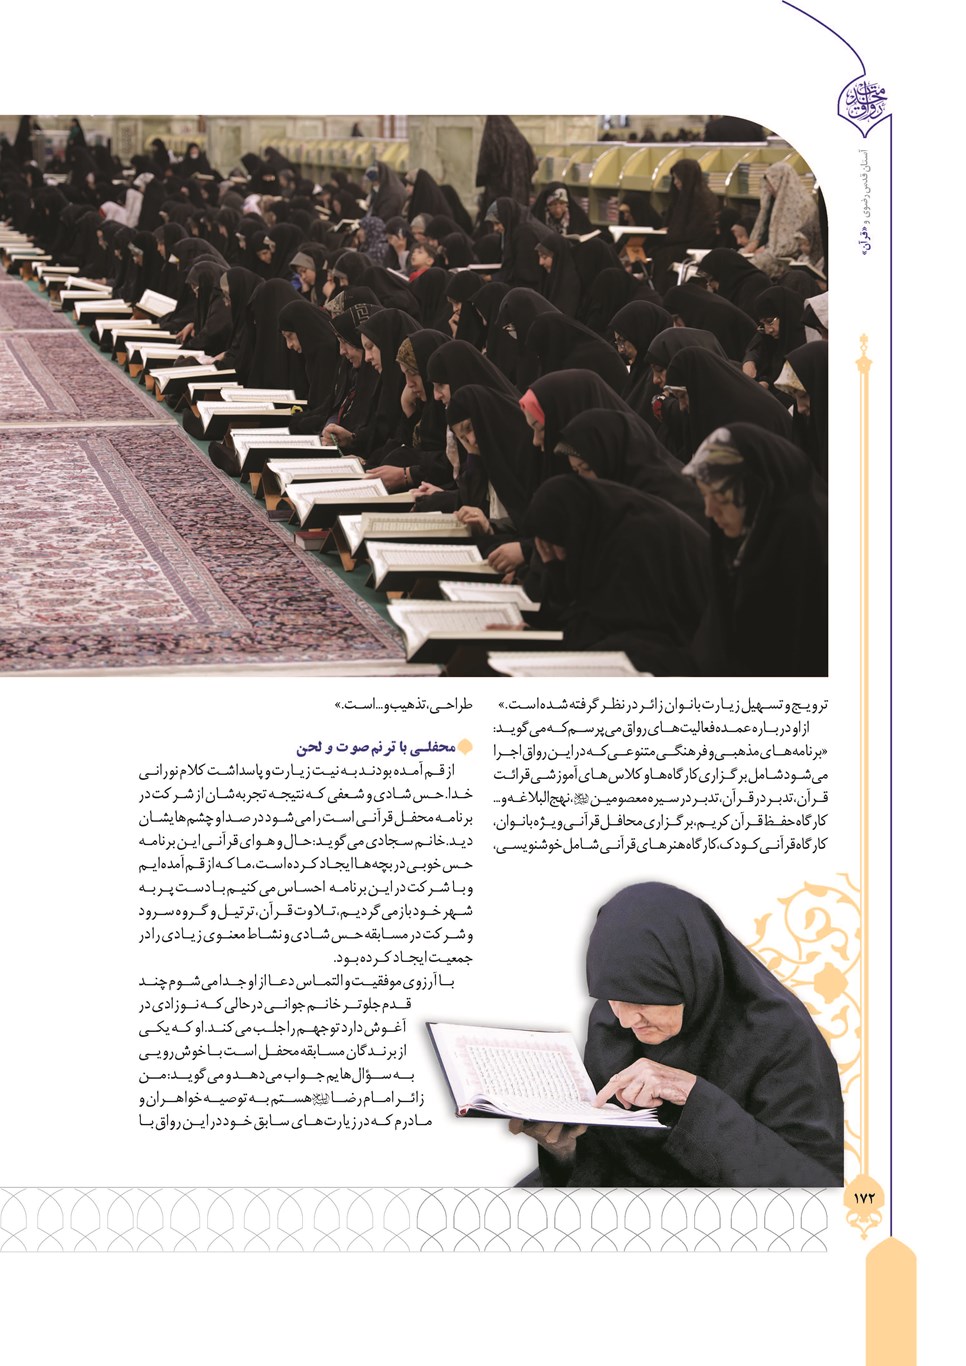 آستان قدس رضوی و «قرآن»
ترویج و تسهیل زیارت بانوان زائر در نظر گرفته شده است.»
از او درباره عمده فعالیت‌های رواق می‌پرسم که می‌گوید:
«برنامه‌های مذهبی و فرهنگی متنوعی که در این رواق اجرا
می‌شود شامل برگزاری کارگاه‌ها و کلاس‌های آموزشی قرائت
قرآن، تدبر در قرآن، تدبر در سیره معصومین، نهج‌البلاغه و...
کارگاه حفظ قرآن کریم، برگزاری محافل قرآنی ویژه بانوان،
کارگاه قرآنی کودک، کارگاه هنرهای قرآنی شامل خوشنویسی،
طراحی، تذهیب و... است.»
محفلی با ترنم صوت و لحن
از قم آمده بودند به نیت زیارت و پاسداشت کلام نورانی
خدا. حس شادی و شعفی که نتیجه تجربه‌شان از شرکت در
برنامه محفل قرآنی است را می‌شود در صدا و چشم‌هایشان
دید. خانم سجادی می‌گوید: حال و هوای قرآنی این برنامه
حس خوبی در بچه‌ها ایجاد کرده است، ما که از قم آمده‌ایم
و با شرکت در این برنامه احساس می‌کنیم با دست پر به
شهر خود باز می‌گردیم، تلاوت قرآن، ترتیل و گروه سرود
و شرکت در مسابقه حس شادی و نشاط معنوی زیادی را در
جمعیت ایجاد کرده بود.
با آرزوی موفقیت و التماس دعا از او جدا می‌شوم چند
قدم جلوتر خانم جوانی در حالی که نوزادی در
آغوش دارد توجهم را جلب می‌کند. او که یکی
از برندگان مسابقه محفل است با خوش‌رویی
به سؤال‌هایم جواب می‌دهد و می‌گوید: من
زائر امام رضا هستم به توصیه خواهران و
مادرم که در زیارت‌های سابق خود در این رواق با
۱۷۲